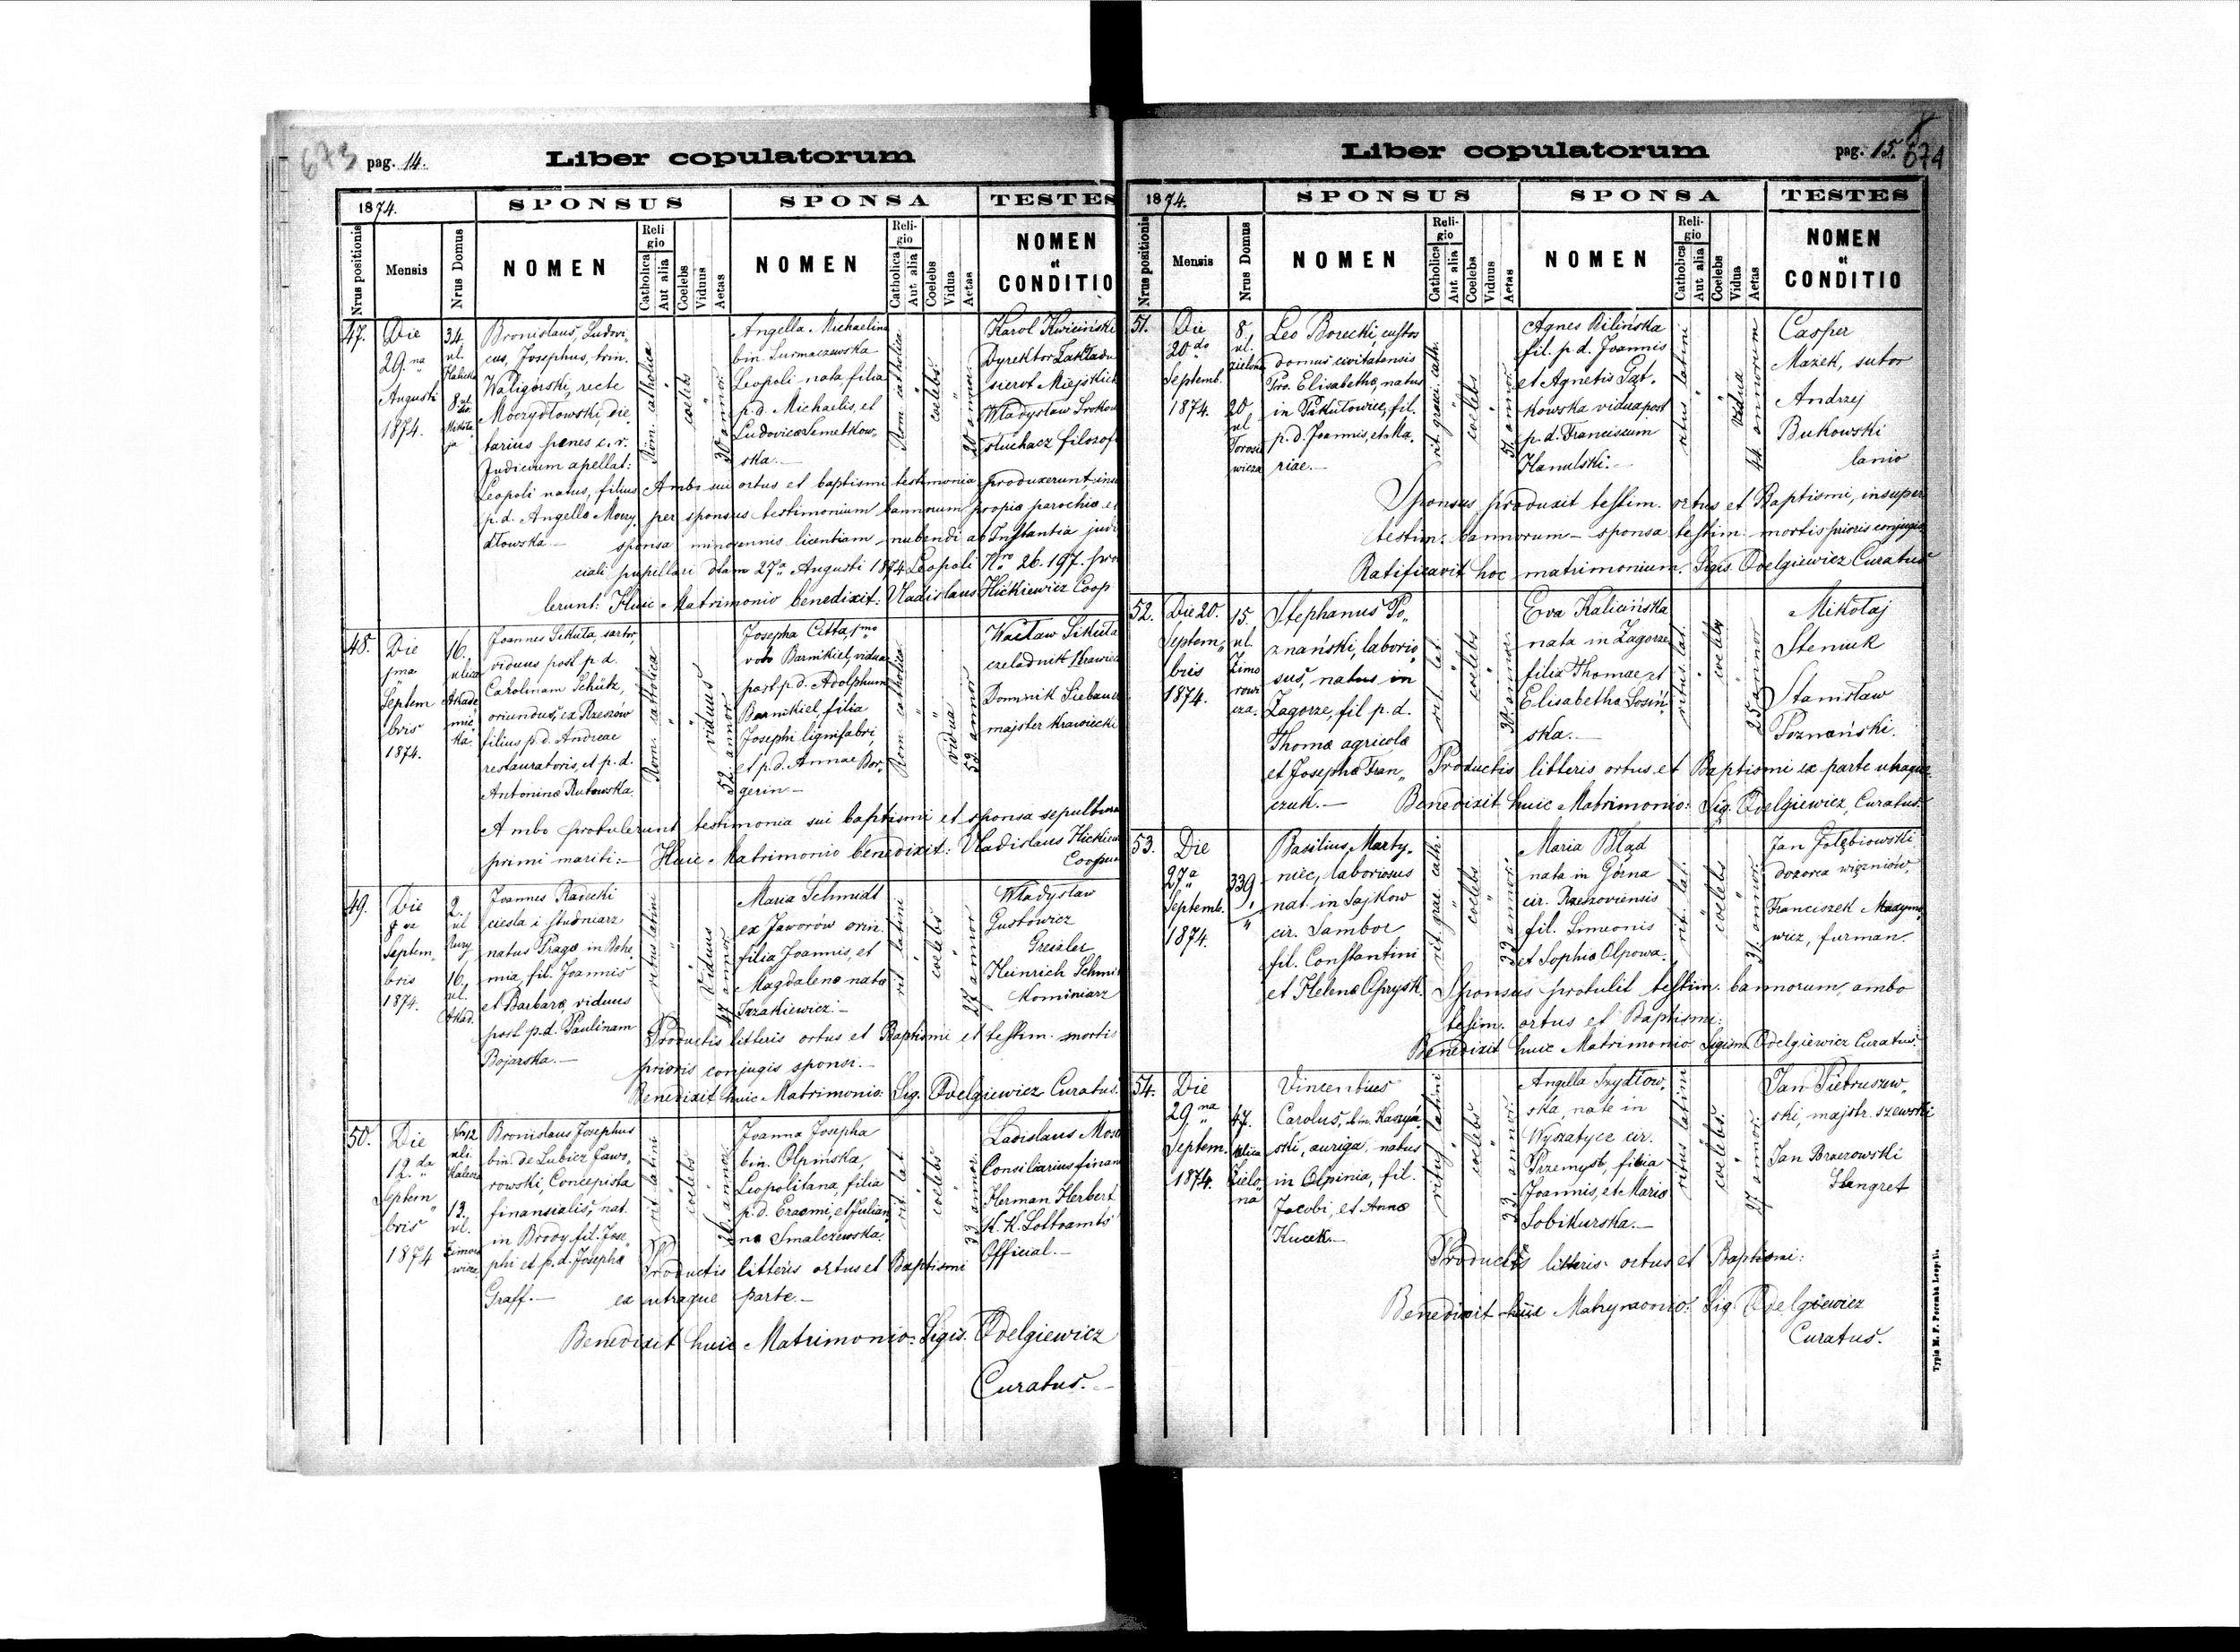 673 pag. 14. Liber copulatorum
1874. SPONSUS SPONSA TESTES
Nrus positionis Mensis Nrus Domus NOMEN Religio Catholica Aut alia Coelebs Viduus Aetas NOMEN Religio Catholica Aut alia Coelebs Vidua Aetas NOMEN et CONDITIO
47. Die 29.na Augusti 1874.
34. ul. Halicka 8 ul. Mikołaja
Bronislaus, Ludovi,
cus, Josephus, trin.
Waligórski, recte
Moczydłowski, die
tarius penes c. r.
Judicium apellat:
Leopoli natus, filius
p. d. Angella Moczy,
dłowska.—
Rom. catholica
coelebs
30 annor.
Angella Michaelina
bin. Surmaczewska
Leopoli nata filia
p. d. Michaelis, et
Ludovicae Semetkow,
ska.—
Rom catholica
coelebs
20 annor.
Karol Kwiciński
Dyrektor Zakładu
sierot Miejskich
Władysław
słuchacz filozof
Ambo sui ortus et baptismi testimonia produxerunt, insu
per sponsus testimonium bannorum propia parochia et
sponsa minorennis licentiam nubendi ab Instantia judi
ciali pupillari dtam 27a Augusti 1874 Leopoli Nro 26.197. pro
lerunt: Huic Matrimonio benedixit: Vladislaus Hickiewicz Coop
48. Die 1ma Septembris 1874.
16. ulica Akademicka.
Joannes Sikuta, sartor,
viduus post p. d.
Carolinam Schütz,
oriundus, ex Rzeszów
filius p. d. Andreae
restauratoris, et p. d.
Antoninae Rutowska.
Rom. catholica
viduus
52 annor.
Josepha Citta, 1mo
voto Barnikiel, vidua
post p. d. Adolphum
Barnikiel, filia
Josephi lignifabri,
et p. d. Annae Bor,
gerin—
Rom catholica
vidua
52 annor
Wacław Sikuta
czeladnik krawiec
Dominik Siebauer
majster krawiecki
Ambo protulerunt testimonia sui baptismi et sponsa sepulturae
primi mariti:— Huic Matrimonio benedixit: Vladislaus Hickiew
Coopera
49. Die Septembris 1874.
2. ul 16. ul. Akad.
Joannes Radecki
ciesla i studniarz
natus Pragae in Bohe,
mia, fil. Joannis
et Barbarae, viduus
post p. d. Paulinam
Bojarska.—
ritus latini
Viduus
47 annor
Maria Schmidt
ex Jaworów oriu.
filia Joannis, et
Magdalenae natae
Iszakiewicz.—
rit latini
coelebs
27 annor
Władysław
Gustowicz
Greisler
Heinrich Schmi
Kominiarz
Productis litteris ortus et Baptismi et testim. mortis
prioris conjugis sponsi.—
Benedixit huic Matrimonio: Sig. Odelgiewicz Curatus.
50. Die 12.da Septembris 1874
Nro 12 ul. 13. ul. Zimorowicza
Bronislaus Josephus
bin. de Lubicz Jawo,
rowski, Concepista
finansialis, nat.
in Brody fil. Jose,
phi et p. d. Josepha
Graff.—
rit latini
coelebs
annor
Joanna Josepha
bin. Olpińska,
Leopolitana, filia
p. d. Erasmi, et Julian,
na Smalczewska.
rit lat.
coelebs
33 annor.
Ladislaus Mosz
Consiliarius finan
Herman Herbert
K. K. Lottoamts
Official.—
Productis litteris ortus et Baptismi
ex utraque parte.—
Benedixit huic Matrimonio: Sigis. Odelgiewicz
Curatus.—
Liber copulatorum pag. 15. 674
1874. SPONSUS SPONSA TESTES
Nrus positionis Mensis Nrus Domus NOMEN Religio Catholica Aut alia Coelebs Viduus Aetas NOMEN Religio Catholica Aut alia Coelebs Vidua Aetas NOMEN et CONDITIO
51. Die 20do Septemb. 1874.
8. ul. zielona 20 ul Torosiewicza
Leo Borecki, custos
domus civitatensis
Sro. Elisabethae, natus
in Pikułowice, fil.
p. d. Joannis, et Ma,
riae.—
rit. graeci. cath.
coelebs
51 annor.
Agnes Bilińska
fil. p. d. Joannis
et Agnetis Gąt,
kowska vidua post
p. d. Franciscum
Hanulski.—
ritus latini
vidua
44 annorum
Casper
Mazek, sutor
Andrzej
Bukowski
lanio
Sponsus produxit testim. ortus et Baptismi, insuper
testim. bannorum— sponsa testim. mortis prioris conjugis
Ratificavit hoc matrimonium. Sigis. Odelgiewicz Curatus
52. Die 20. Septembris 1874.
15. ul. Zimorowicza.
Stephanus Po,
znański, laborio
sus, natus in
Zagorze, fil p. d.
Thomae agricolae
et Josephae Fran,
czuk.—
rit. lat.
coelebs
30 annor.
Eva Kalicińska
nata in Zagorze
filia Thomae et
Elisabetha Sosiń,
ska.—
ritus lat.
coelebs
25 annor
Mikołaj
Steniuk
Stanisław
Poznański.
Productis litteris ortus et Baptismi ex parte utraque.
Benedixit huic Matrimonio: Sig. Odelgiewicz, Curatus.
53. Die 27a Septemb. 1874
339
Basilius Marty,
niec, laboriosus
nat. in Sajkow
cir. Sambor
fil. Constantini
et Helenae Oprysk.
rit. grae. cath.
coelebs
39 annor.
Maria Błąd
nata in Górna
cir. Rzeszoviensis
fil. Simeonis
et Sophiae Olpowa.
rit. lat.
coelebs
31. annor.
Jan Gołębiowski
dozorca więzniów,
Franciszek Maxymo,
wicz, furman.
Sponsus protulit testim. bannorum, ambo
tesim. ortus et Baptismi:
Benedixit huic Matrimonio Sigism Odelgiewicz Curatus.
54. Die 29.na Septem. 1874.
47. ulica Zielona
Vincentius
Carolus, bin. Kaszyń,
ski, auriga, natus
in Olpinia, fil.
Jacobi, et Annae
Kucek.—
ritus latini
coelebs
33 annor.
Angella Szydłow,
ska, nate in
Wyszatyce cir.
Przemysl, filia
Joannis, et Mariae
Sobikurska.—
ritus latini
coelebs.
27 annor.
Jan Pietruszew,
ski, majstr. szewski
Jan Brzezowski
Hangret
Productis litteris ortus et Baptismi:
Benedixit huic Matrymonio: Sig. Odelgiewicz
Curatus.
Typis M. F. Poremba Leopoli.